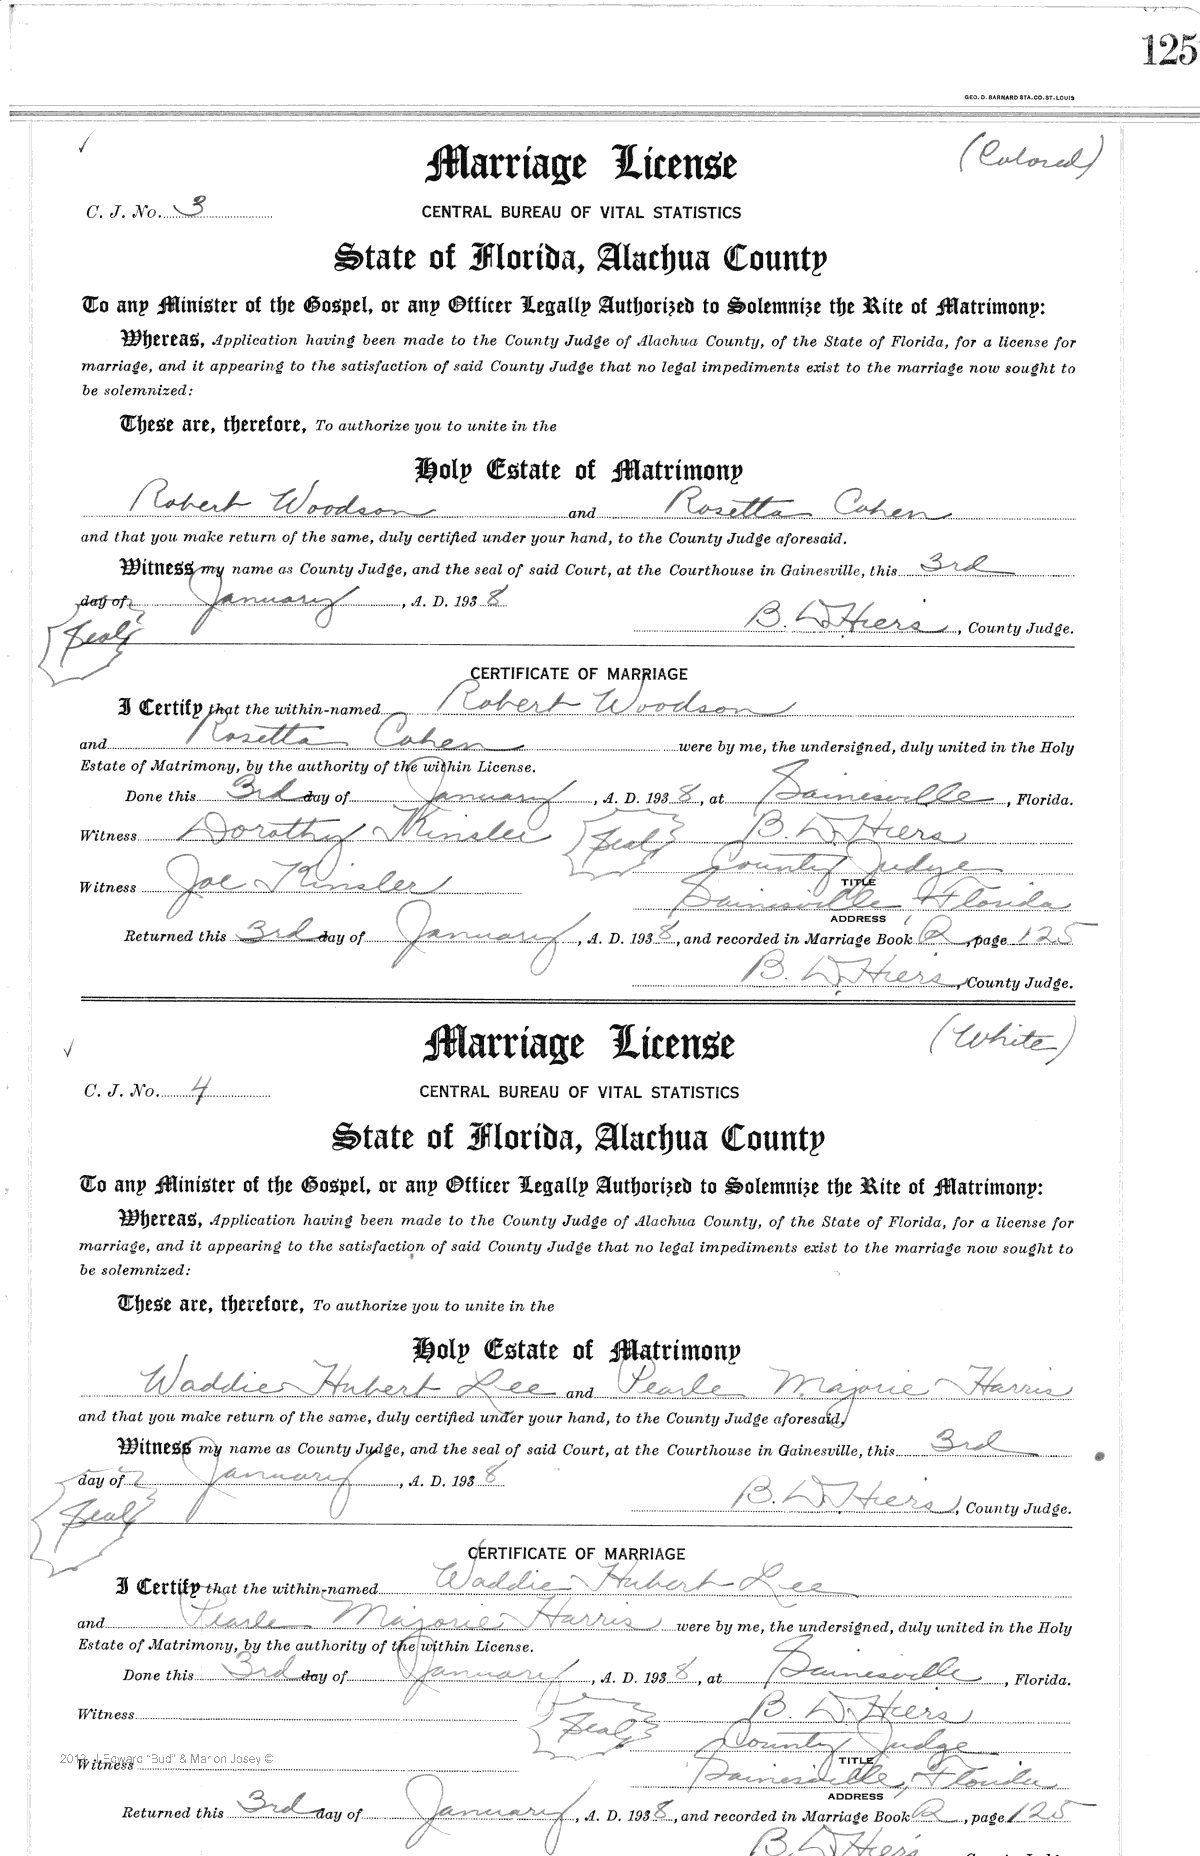 125
GEO. D. BARNARD STA. CO. ST. LOUIS
Marriage License (Colored)
C. J. No. 3 CENTRAL BUREAU OF VITAL STATISTICS
State of Florida, Alachua County
To any Minister of the Gospel, or any Officer Legally Authorized to Solemnize the Rite of Matrimony:
Whereas, Application having been made to the County Judge of Alachua County, of the State of Florida, for a license for
marriage, and it appearing to the satisfaction of said County Judge that no legal impediments exist to the marriage now sought to
be solemnized:
These are, therefore, To authorize you to unite in the
Holy Estate of Matrimony
Robert Woodson and Rosetta Cohen
and that you make return of the same, duly certified under your hand, to the County Judge aforesaid.
Witness my name as County Judge, and the seal of said Court, at the Courthouse in Gainesville, this 3rd
day of January, A. D. 1938
Seal B. D. Hiers, County Judge.
CERTIFICATE OF MARRIAGE
I Certify that the within-named Robert Woodson
and Rosetta Cohen were by me, the undersigned, duly united in the Holy
Estate of Matrimony, by the authority of the within License.
Done this 3rd day of January, A. D. 1938, at Gainesville, Florida.
Witness Dorothy Kinsler Seal B. D. Hiers
County Judge
TITLE
Witness Joe Kinsler Gainesville, Florida
ADDRESS
Returned this 3rd day of January, A. D. 1938, and recorded in Marriage Book Q, page 125
B. D. Hiers, County Judge.
Marriage License (White)
C. J. No. 4 CENTRAL BUREAU OF VITAL STATISTICS
State of Florida, Alachua County
To any Minister of the Gospel, or any Officer Legally Authorized to Solemnize the Rite of Matrimony:
Whereas, Application having been made to the County Judge of Alachua County, of the State of Florida, for a license for
marriage, and it appearing to the satisfaction of said County Judge that no legal impediments exist to the marriage now sought to
be solemnized:
These are, therefore, To authorize you to unite in the
Holy Estate of Matrimony
Waddie Hubert Lee and Pearle Majorie Harris
and that you make return of the same, duly certified under your hand, to the County Judge aforesaid.
Witness my name as County Judge, and the seal of said Court, at the Courthouse in Gainesville, this 3rd
day of January, A. D. 1938
Seal B. D. Hiers, County Judge.
CERTIFICATE OF MARRIAGE
I Certify that the within-named Waddie Hubert Lee
and Pearle Majorie Harris were by me, the undersigned, duly united in the Holy
Estate of Matrimony, by the authority of the within License.
Done this 3rd day of January, A. D. 1938, at Gainesville, Florida.
Witness Seal B. D. Hiers
County Judge
2013 J Edward "Bud" & Marion Josey ©
TITLE
Witness Gainesville, Florida
ADDRESS
Returned this 3rd day of January, A. D. 1938, and recorded in Marriage Book Q, page 125
B. D. Hiers